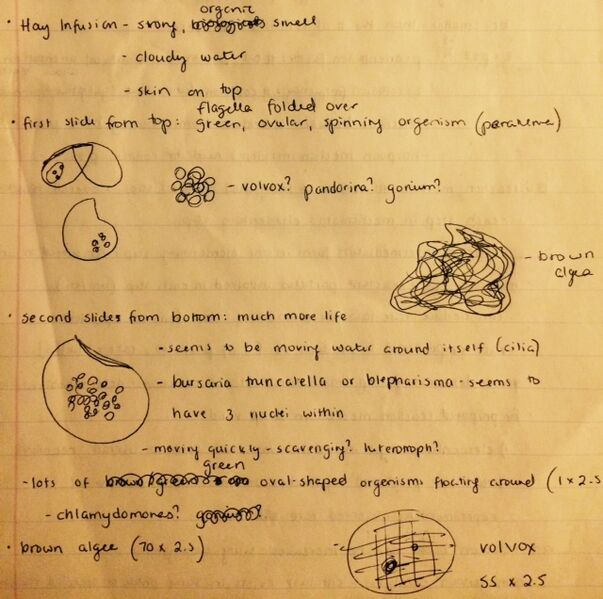 organic
• Hay Infusion - strong, smell
- cloudy water
- skin on top
flagella folded over
• first slide from top: green, ovular, spinning orgenism (paranema)
- volvox? pandorina? gonium?
- brown
algea
• second slides from bottom: much more life
- seems to be moving water around itself (cilia)
- bursaria truncatella or blepharisma - seems to
have 3 nuclei within
- moving quickly - scavenging? heterotroph?
green
- lots of oval-shaped orgenisms floating around (1 x 2.5
- chlamydomones?
• brown algee (70 x 2.5)
volvox
55 x 2.5